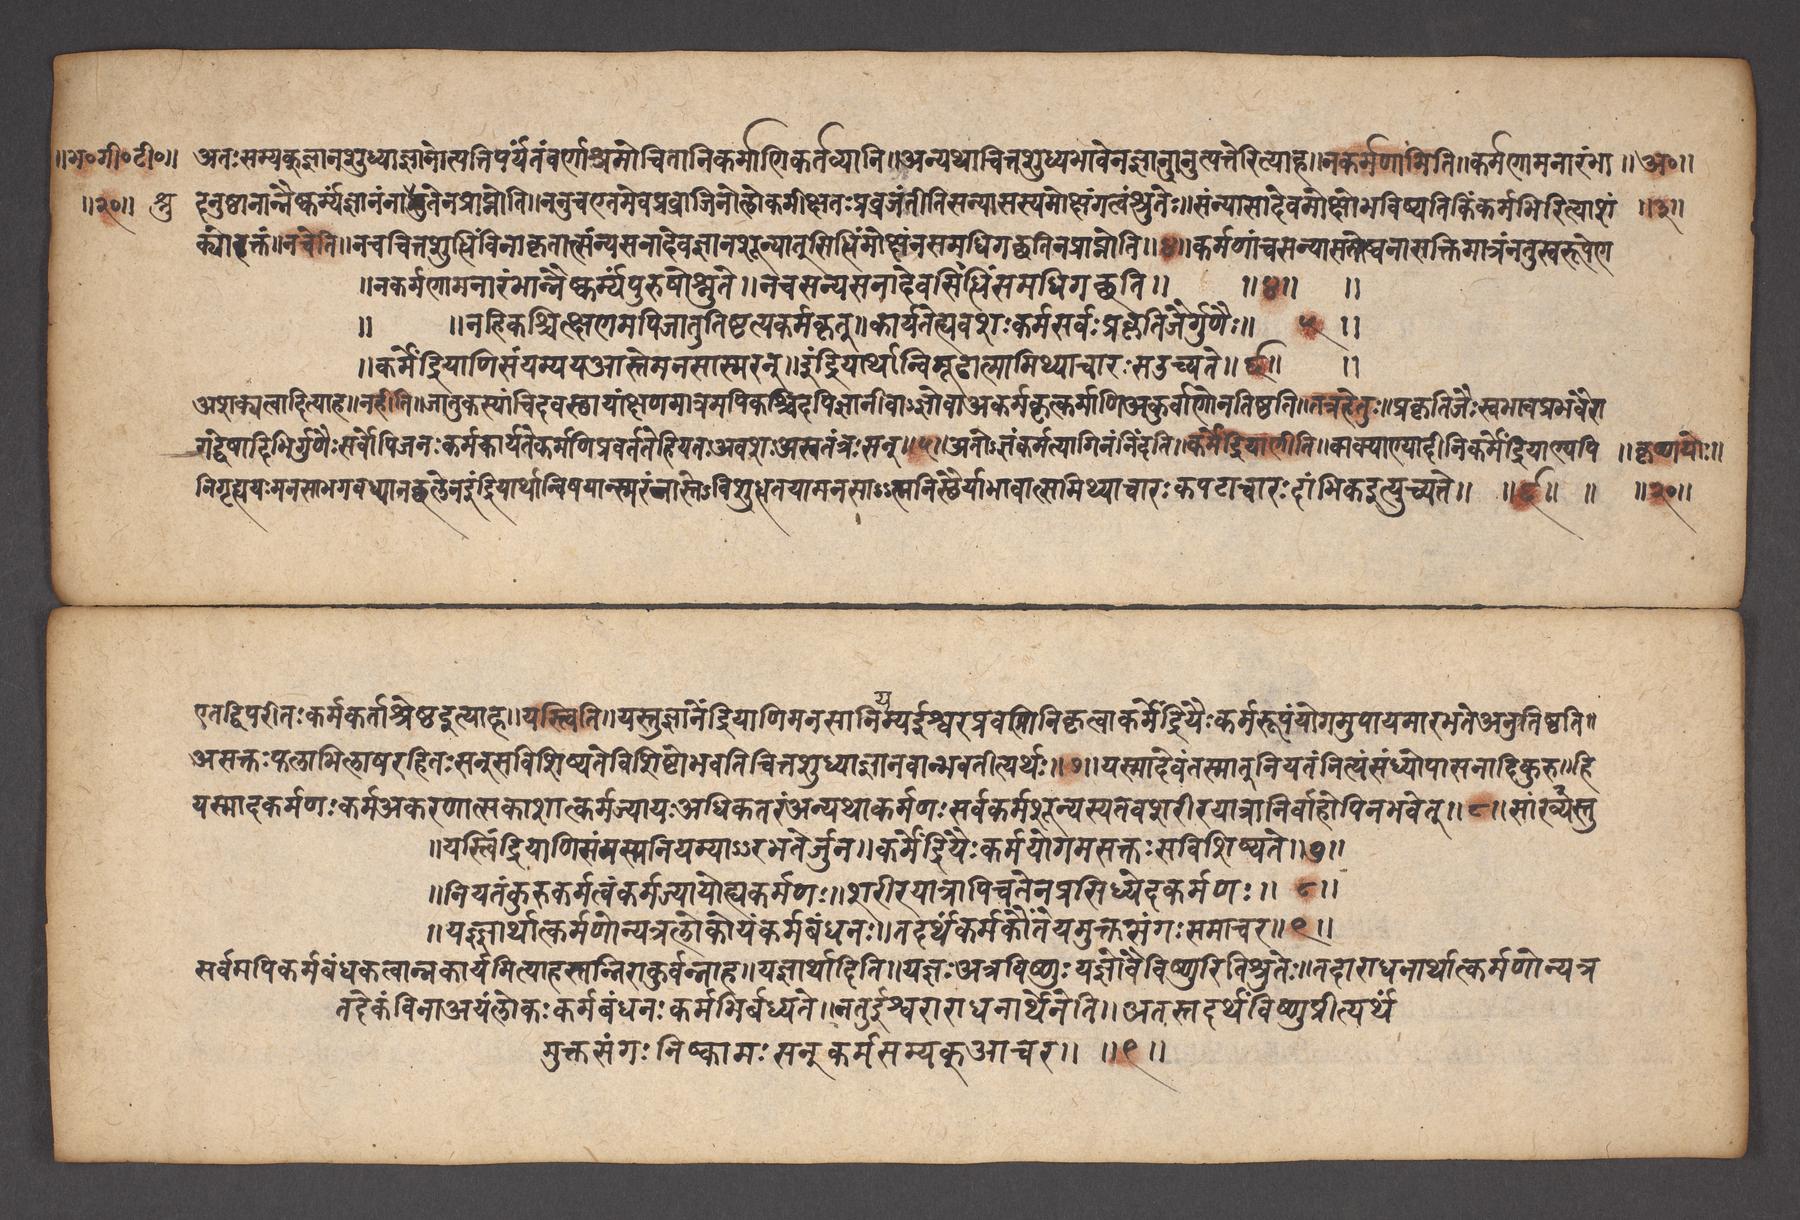 ॥भ॰गी॰टी॰॥ अतःसम्यक्ज्ञानशुध्याज्ञानोत्पत्तिपर्यंतंवर्णाश्रमोचितानिकर्माणिकर्तव्यानि॥अन्यथाचित्तशुध्यभावेनज्ञानानुत्पत्तेरित्याह॥नकर्मणामिति॥कर्मणामनारंभा ॥अ॰॥
॥२०॥ श्रु दनुष्ठानान्नैष्कर्म्यंज्ञानंनाश्नुतेनप्राप्नोति॥ननुचएतमेवप्रव्राजिनोलोकमीक्षतःप्रव्रजंतीतिसन्यासस्यमोक्षांगत्वंश्रुतेः॥संन्यासादेवमोक्षोभविष्यतिकिंकर्मभिरित्याशं ॥३॥
क्योक्तं॥नचेति॥नचचित्तशुद्धिंविनाकृतात्संन्यसनादेवज्ञानशून्यात्सिद्धिंमोक्षंनसमधिगछतिनप्राप्नोति॥४॥कर्मणांचसन्यासस्तेष्वनासक्तिमात्रंनतुस्वरूपेण
॥नकर्मणामनारंभान्नैष्कर्म्यंपुरुषोश्नुते॥नचसन्यसनादेवसिद्धिंसमधिगछति॥ ॥४॥ ॥
॥ ॥नहिकश्चित्क्षणमपिजातुतिष्ठत्यकर्मकृत्॥कार्यतेह्यवशःकर्मसर्वःप्रकृतिजैर्गुणैः॥ ५ ॥
॥कर्मेंद्रियाणिसंयम्ययआस्तेमनसास्मरन्॥इंद्रियार्थान्विमूढात्मामिथ्याचारःसउच्यते॥६॥ ॥
अशक्यत्वादित्याह॥नहीति॥जातुकस्यांचिदवस्थायांक्षणमात्रमपिकश्चिदपिज्ञानीवाऽज्ञोवाअकर्मकृत्कर्माणिअकुर्वाणोनतिष्ठति॥तत्रहेतुः॥प्रकृतिजैःस्वभावप्रभवैरा
गद्वेषादिभिर्गुणैःसर्वोपिजनःकर्मकार्यतेकर्मणिप्रवर्ततेहियतःअवशःअस्वतंत्रःसन्॥५॥अतोऽज्ञंकर्मत्यागिनंनिंदति॥कर्मेंद्रियाणीति॥वाक्पाण्यादीनिकर्मेंद्रियाण्यपि ॥कृष्णयोः॥
निगृह्ययःमनसाभगवध्यानछलेनइंद्रियार्थान्विषयान्स्मरंनास्तेऽविशुद्धतयामनसाऽऽत्मनिस्थैर्याभावात्सामिथ्याचारःकपटाचारःदांभिकइत्युच्यते॥ ॥६॥ ॥ ॥२०॥
एतद्विपरीतःकर्मकर्ताश्रेष्ठइत्याह॥यस्त्विति॥यस्तुज्ञानेंद्रियाणिमनसानियम्यईश्वरप्रवणानिकृत्वाकर्मेंद्रियैःकर्मरूपंयोगमुपायमारभतेअनुतिष्ठति॥
असक्तःफलाभिलाषरहितःसन्सविशिष्यतेविशिष्टोभवतिचित्तशुध्याज्ञानवान्भवतीत्यर्थः॥७॥यस्मादेवंतस्मात्नियतंनित्यंसंध्योपासनादिकुरु॥हि
यस्मादकर्मणःकर्मअकरणात्सकाशात्कर्मज्यायःअधिकतरंअन्यथाकर्मणःसर्वकर्मशून्यस्यतवशरीरयात्रानिर्वाहोपिनभवेत्॥८॥सांख्यैस्तु
॥यस्त्विंद्रियाणिसंमस्मनियम्याऽऽरभतेर्जुन॥कर्मेंद्रियैःकर्मयोगमसक्तःसविशिष्यते॥७॥
॥नियतंकुरुकर्मत्वंकर्मज्यायोह्यकर्मणः॥शरीरयात्रापिचतेनप्रसिध्येदकर्मणः॥ ८॥
॥यज्ञार्थात्कर्मणोन्यत्रलोकोयंकर्मबंधनः॥तदर्थंकर्मकौंतेयमुक्तसंगःसमाचर॥९॥
सर्वमपिकर्मबंधकत्वान्नकार्यमित्याहस्तान्निराकुर्वन्नाह॥यज्ञार्थादिति॥यज्ञःअत्रविष्णुःयज्ञोवैविष्णुरितिश्रुतेः॥तदाराधनार्थात्कर्मणोन्यत्र
तदेकंविनाअयंलोकःकर्मबंधनःकर्मभिर्बध्यते॥नतुईश्वराराधनार्थेनेति॥अतस्तदर्थंविष्णुप्रीत्यर्थं
मुक्तसंगःनिष्कामःसन्कर्मसम्यक्आचर॥ ॥९॥